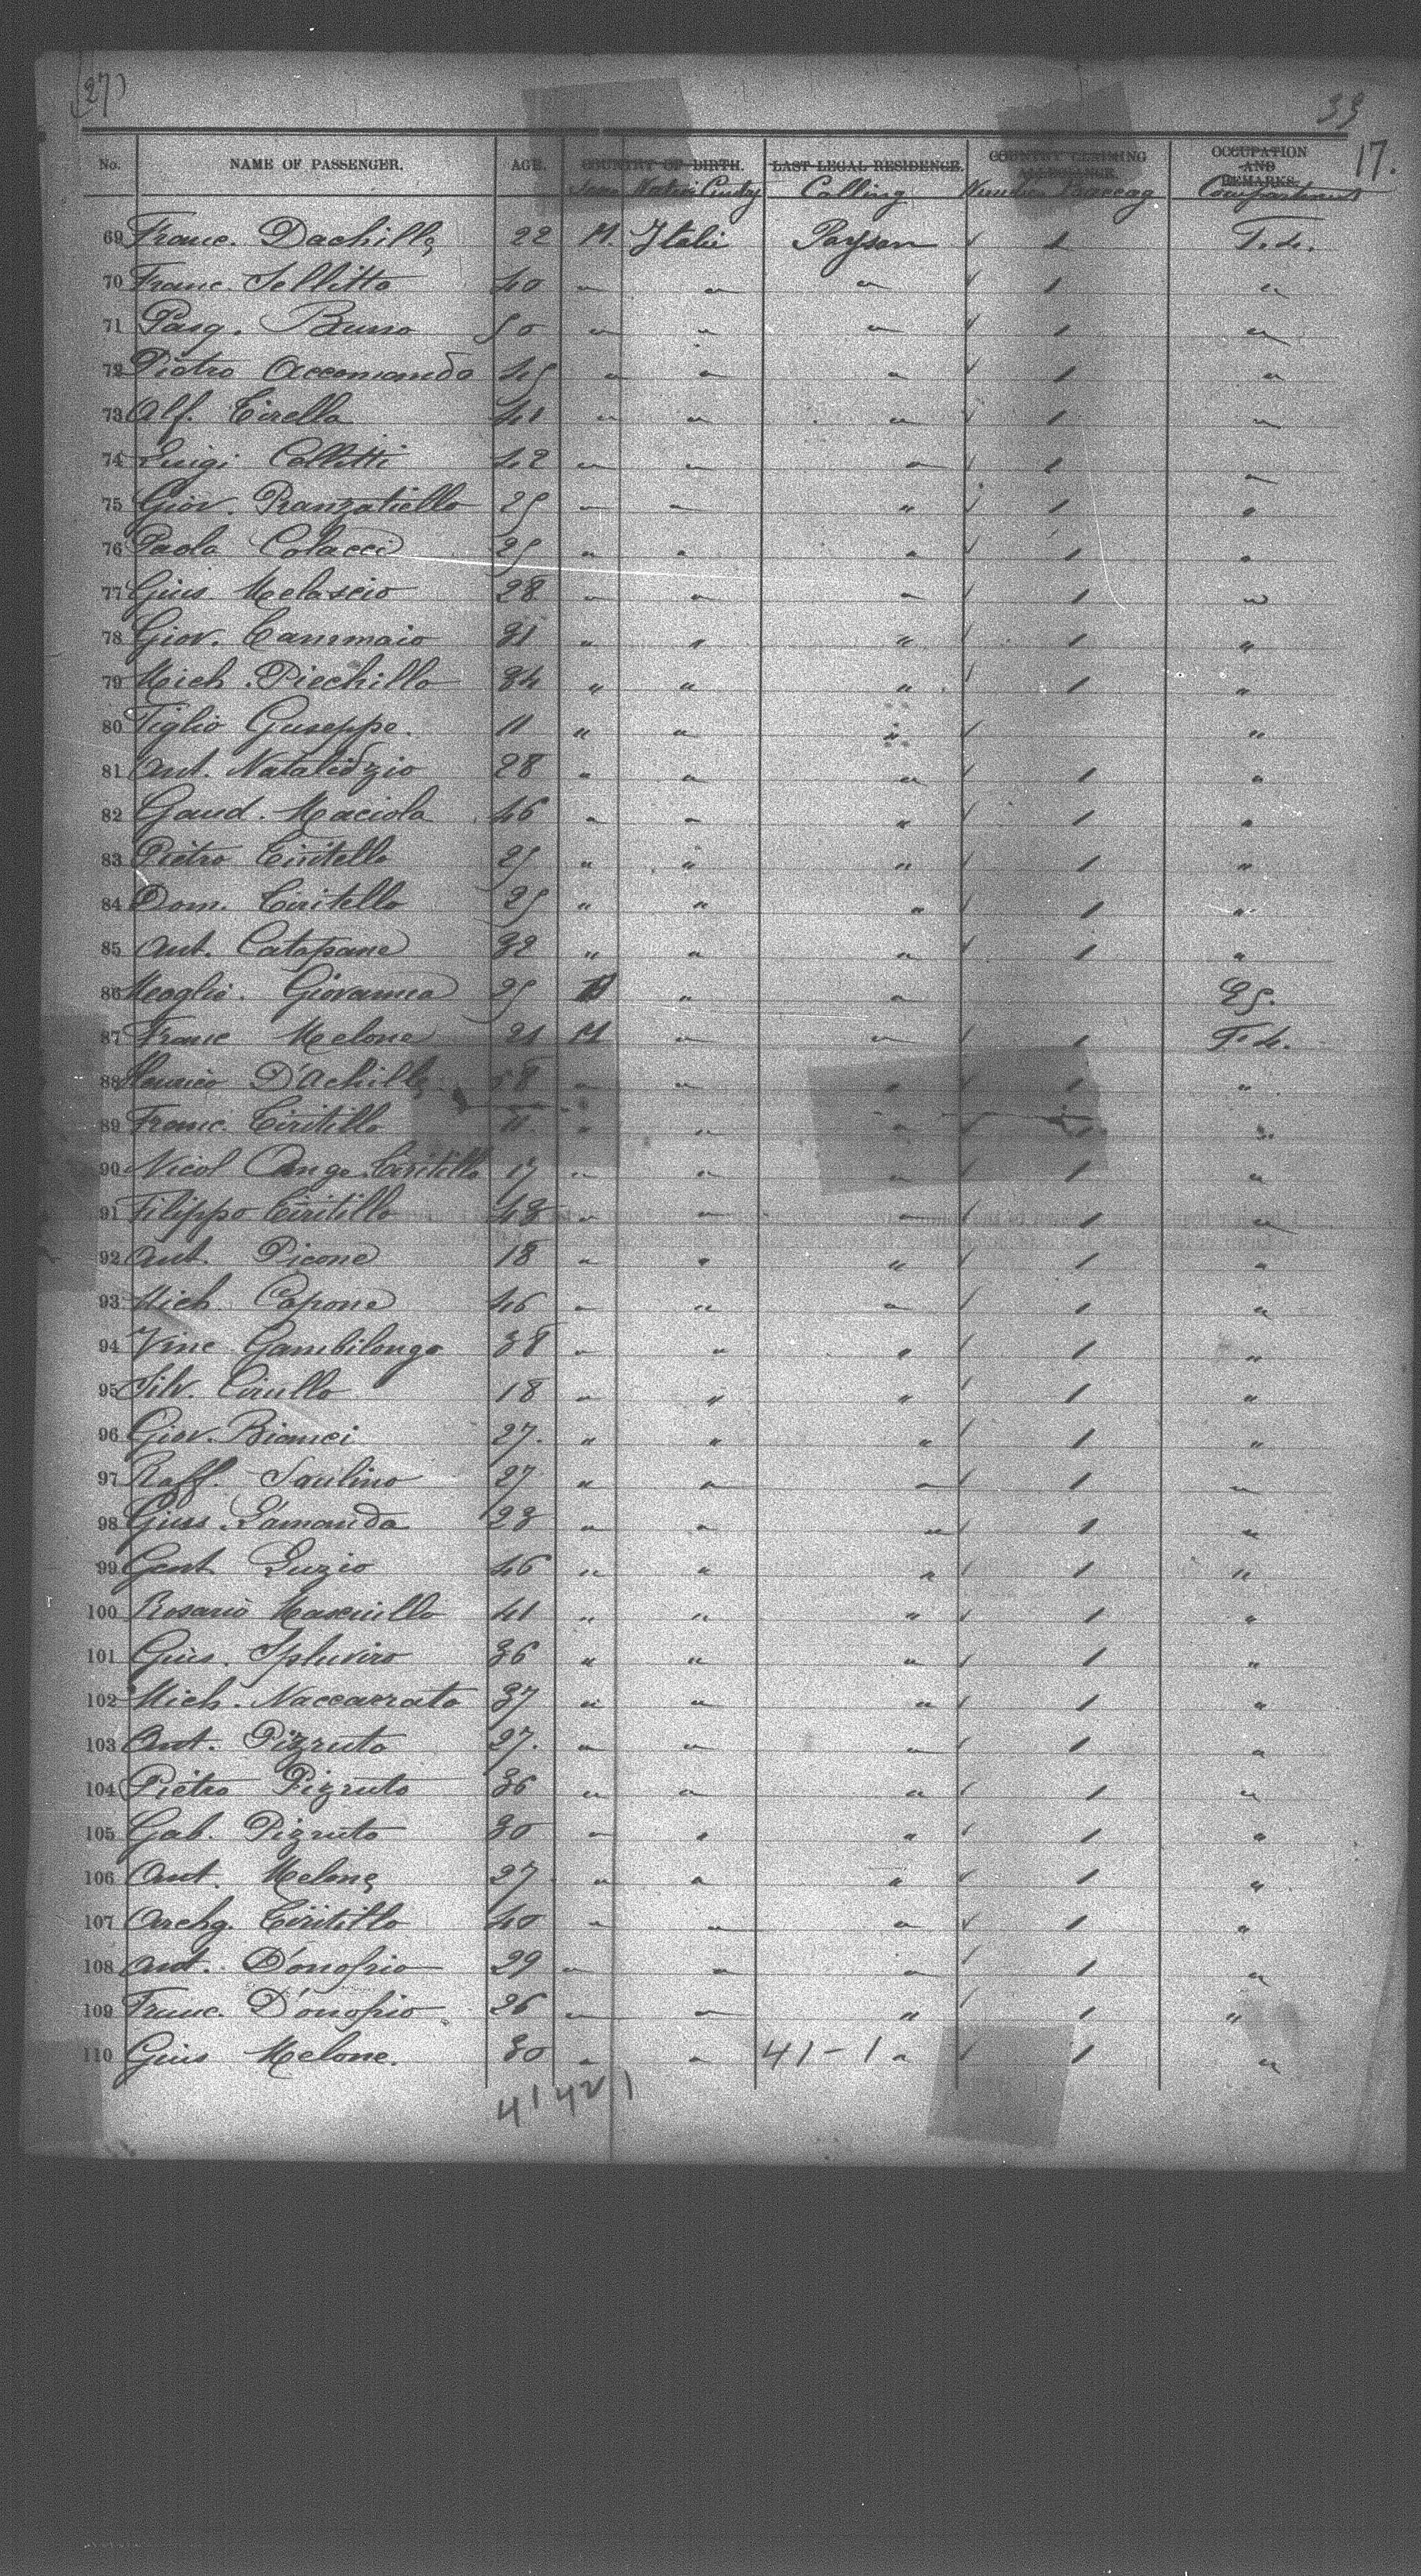 (27)
33
17.
No. NAME OF PASSENGER. AGE. COUNTRY OF BIRTH. LAST LEGAL RESIDENCE. COUNTRY CLAIMING ALLEGIANCE. OCCUPATION AND REMARKS.
Native Calling Compartment
69 Franc. Dachille 22 M. Italie Paysan 1 F. 4.
70 Franc. Sellitto 40 " " " 1 "
71 Pasq. Russo 50 " " " 1 "
72 Pietro Accomando 45 " " " 1 "
73 Alf. Cirella 41 " " " 1 "
74 Luigi Collitti 42 " " " 1 "
75 Giov. Pranzatiello 25 " " " 1 "
76 Paolo Colacci 25 " " " 1 "
77 Gius. Melascio 28 " " " 1 "
78 Giov. Cammaio 31 " " " 1 "
79 Mich. Piechillo 34 " " " 1 "
80 Figlio Guseppe. 11 " " " "
81 Ant. 28 " " " 1 "
82 Gaud. Maciola 46 " " " 1 "
83 Pietro Ciritello 25 " " " 1 "
84 Dom. Ciritello 25 " " " 1 "
85 Ant. Catapane 32 " " " 1 "
86 Moglie. Giovanna 25 " " E 5.
87 Franc Melone 21 M " " 1 F. 4.
88 D'Achille 58 " " " 1 "
89 Franc. Ciritillo 11. " " " 1 "
90 Nicol Ange Ciritillo 17 " " " 1 "
91 Filippo Ciritillo 43 " " " 1 "
92 Ant. Picone 18 " " " 1 "
93 Mich Capone 46 " " " 1 "
94 Vinc Gambilongo 38 " " " 1 "
95 Silv. Cirullo 18 " " " 1 "
96 Giov. Bianci 27. " " " 1 "
97 Raff. Saulino 27 " " " 1 "
98 Gius. L'amanda 23 " " " 1 "
99 Gent Luzio 46 " " " 1 "
100 Rosario Mascuillo 41 " " " 1 "
101 Gius. 36 " " " 1 "
102 Mich. Naccarrato 37 " " " 1 "
103 Ant. Pizruto 27. " " " 1 "
104 Pietro Pizruto 36 " " " 1 "
105 Gab. Pizruto 30 " " " 1 "
106 Ant. Melone 27 " " " 1 "
107 Archg. Ciritillo 40 " " " 1 "
108 Ant. D'onofrio 29 " " " 1 "
109 Franc. D'onofrio 26 " " " 1 "
110 Gius Melone. 30 " " 41-1 " 1 "
41 42 1